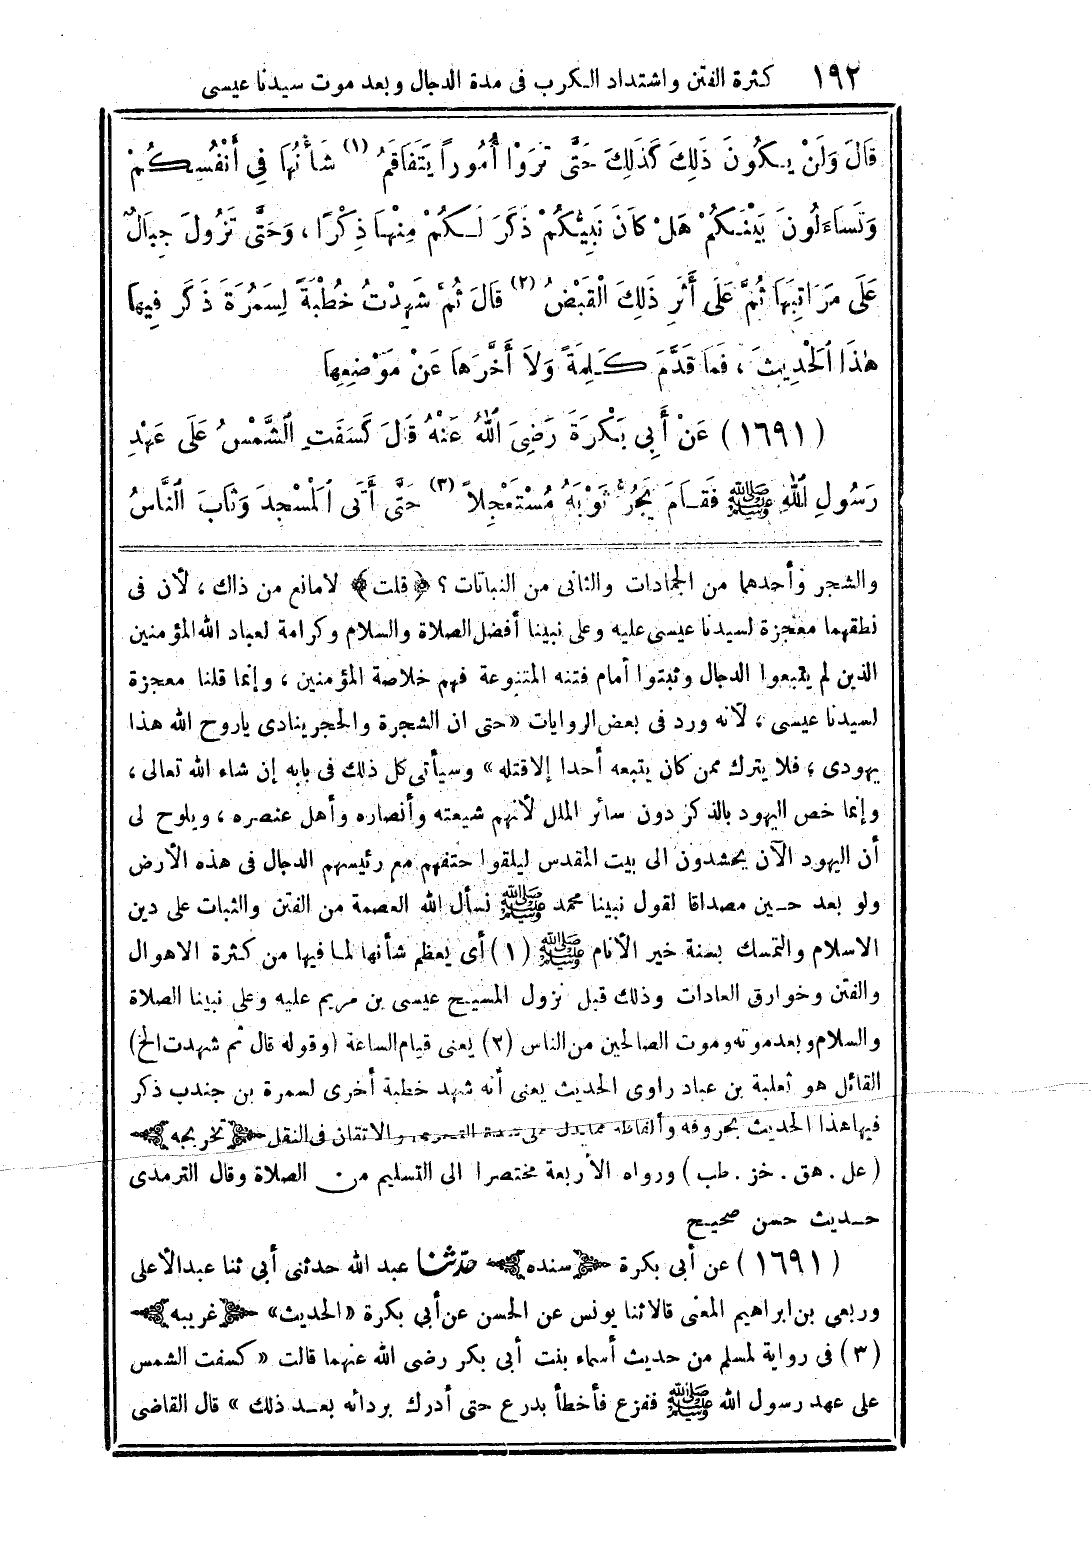 ١٩٢ كثرة الفتن واشتداد الكرب فى مدة الدجال وبعد موت سيدنا عيسى
قَالَ وَلَنْ يَكُونَ ذَلِكَ كَذَلِكَ حَتَّى تَرَوْا أُمُوراً يَتَفَاقَمُ (١) شَأْنُهَا فِي أَنْفُسِكُمْ
وَتَسَاءَلُونَ بَيْنَكُمْ هَلْ كَانَ نَبِيُّكُمْ ذَكَرَ لَكُمْ مِنْهَا ذِكْرًا ، وَحَتَّى تَزُولَ جِبَالٌ
عَلَى مَرَاتِبِهَا ثُمَّ عَلَى أَثَرِ ذَلِكَ الْقَبْضُ (٢) قَالَ ثُمَّ شَهِدْتُ خُطْبَةً لِسَمُرَةَ ذَكَرَ فِيهَا
هٰذَا الْحَدِيثَ ، فَمَا قَدَّمَ كَلِمَةً وَلاَ أَخَّرَهَا عَنْ مَوْضِعِهَا
(١٦٩١) عَنْ أَبِي بَكْرَةَ رَضِيَ اللهُ عَنْهُ قَالَ كَسَفَتِ الشَّمْسُ عَلَى عَهْدِ
رَسُولِ اللهِ ﷺ فَقَامَ يَجُرُّ ثَوْبَهُ مُسْتَعْجِلاً (٣) حَتَّى أَتَى الْمَسْجِدَ وَثَابَ النَّاسُ
والشجر وأحدهما من الجمادات والثانى من النباتات ؟ ﴿ قلت ﴾ لامانع من ذاك ، لأن فى
نطقهما معجزة لسيدنا عيسى عليه وعلى نبينا أفضل الصلاة والسلام وكرامة لعباد الله المؤمنين
الذين لم يتبعوا الدجال وثبتوا أمام فتنه المتنوعة فهم خلاصة المؤمنين ، وإنما قلنا معجزة
لسيدنا عيسى ، لأنه ورد فى بعض الروايات «حتى ان الشجرة والحجر ينادى ياروح الله هذا
يهودى ، فلا يترك ممن كان يتبعه أحدا إلا قتله» وسيأتى كل ذلك فى بابه إن شاء الله تعالى ،
وإنما خص اليهود بالذكر دون سائر الملل لأنهم شيعته وأنصاره وأهل عنصره ، ويلوح لى
أن اليهود الآن يحشدون الى بيت المقدس ليلقوا حتفهم مع رئيسهم الدجال فى هذه الأرض
ولو بعد حين مصداقا لقول نبينا محمد ﷺ نسأل الله العصمة من الفتن والثبات على دين
الاسلام والتمسك بسنة خير الأنام ﷺ (١) أى يعظم شأنها لما فيها من كثرة الاهوال
والفتن وخوارق العادات وذلك قبل نزول المسيح عيسى بن مريم عليه وعلى نبينا الصلاة
والسلام وبعد موته وموت الصالحين من الناس (٢) يعنى قيام الساعة (وقوله قال ثم شهدت الخ)
القائل هو ثعلبة بن عباد راوى الحديث يعنى أنه شهد خطبة أخرى لسمرة بن جندب ذكر
فيها هذا الحديث بحروفه وألفاظه مما يدل على شدة التحرى والاتقان فى النقل ﴿ تخريجه ﴾
(عل . هق . خز . طب) ورواه الأربعة مختصرا الى التسليم من الصلاة وقال الترمذى
حديث حسن صحيح
(١٦٩١) عن أبى بكرة ﴿ سنده ﴾ حدّثنا عبد الله حدثنى أبي ثنا عبد الأعلى
وربعي بن ابراهيم المعنى قالا ثنا يونس عن الحسن عن أبي بكرة «الحديث» ﴿ غريبه ﴾
(٣) فى رواية لمسلم من حديث أسماء بنت أبى بكر رضى الله عنهما قالت « كسفت الشمس
على عهد رسول الله ﷺ ففزع فأخطأ بدرع حتى أدرك بردائه بعد ذلك » قال القاضى